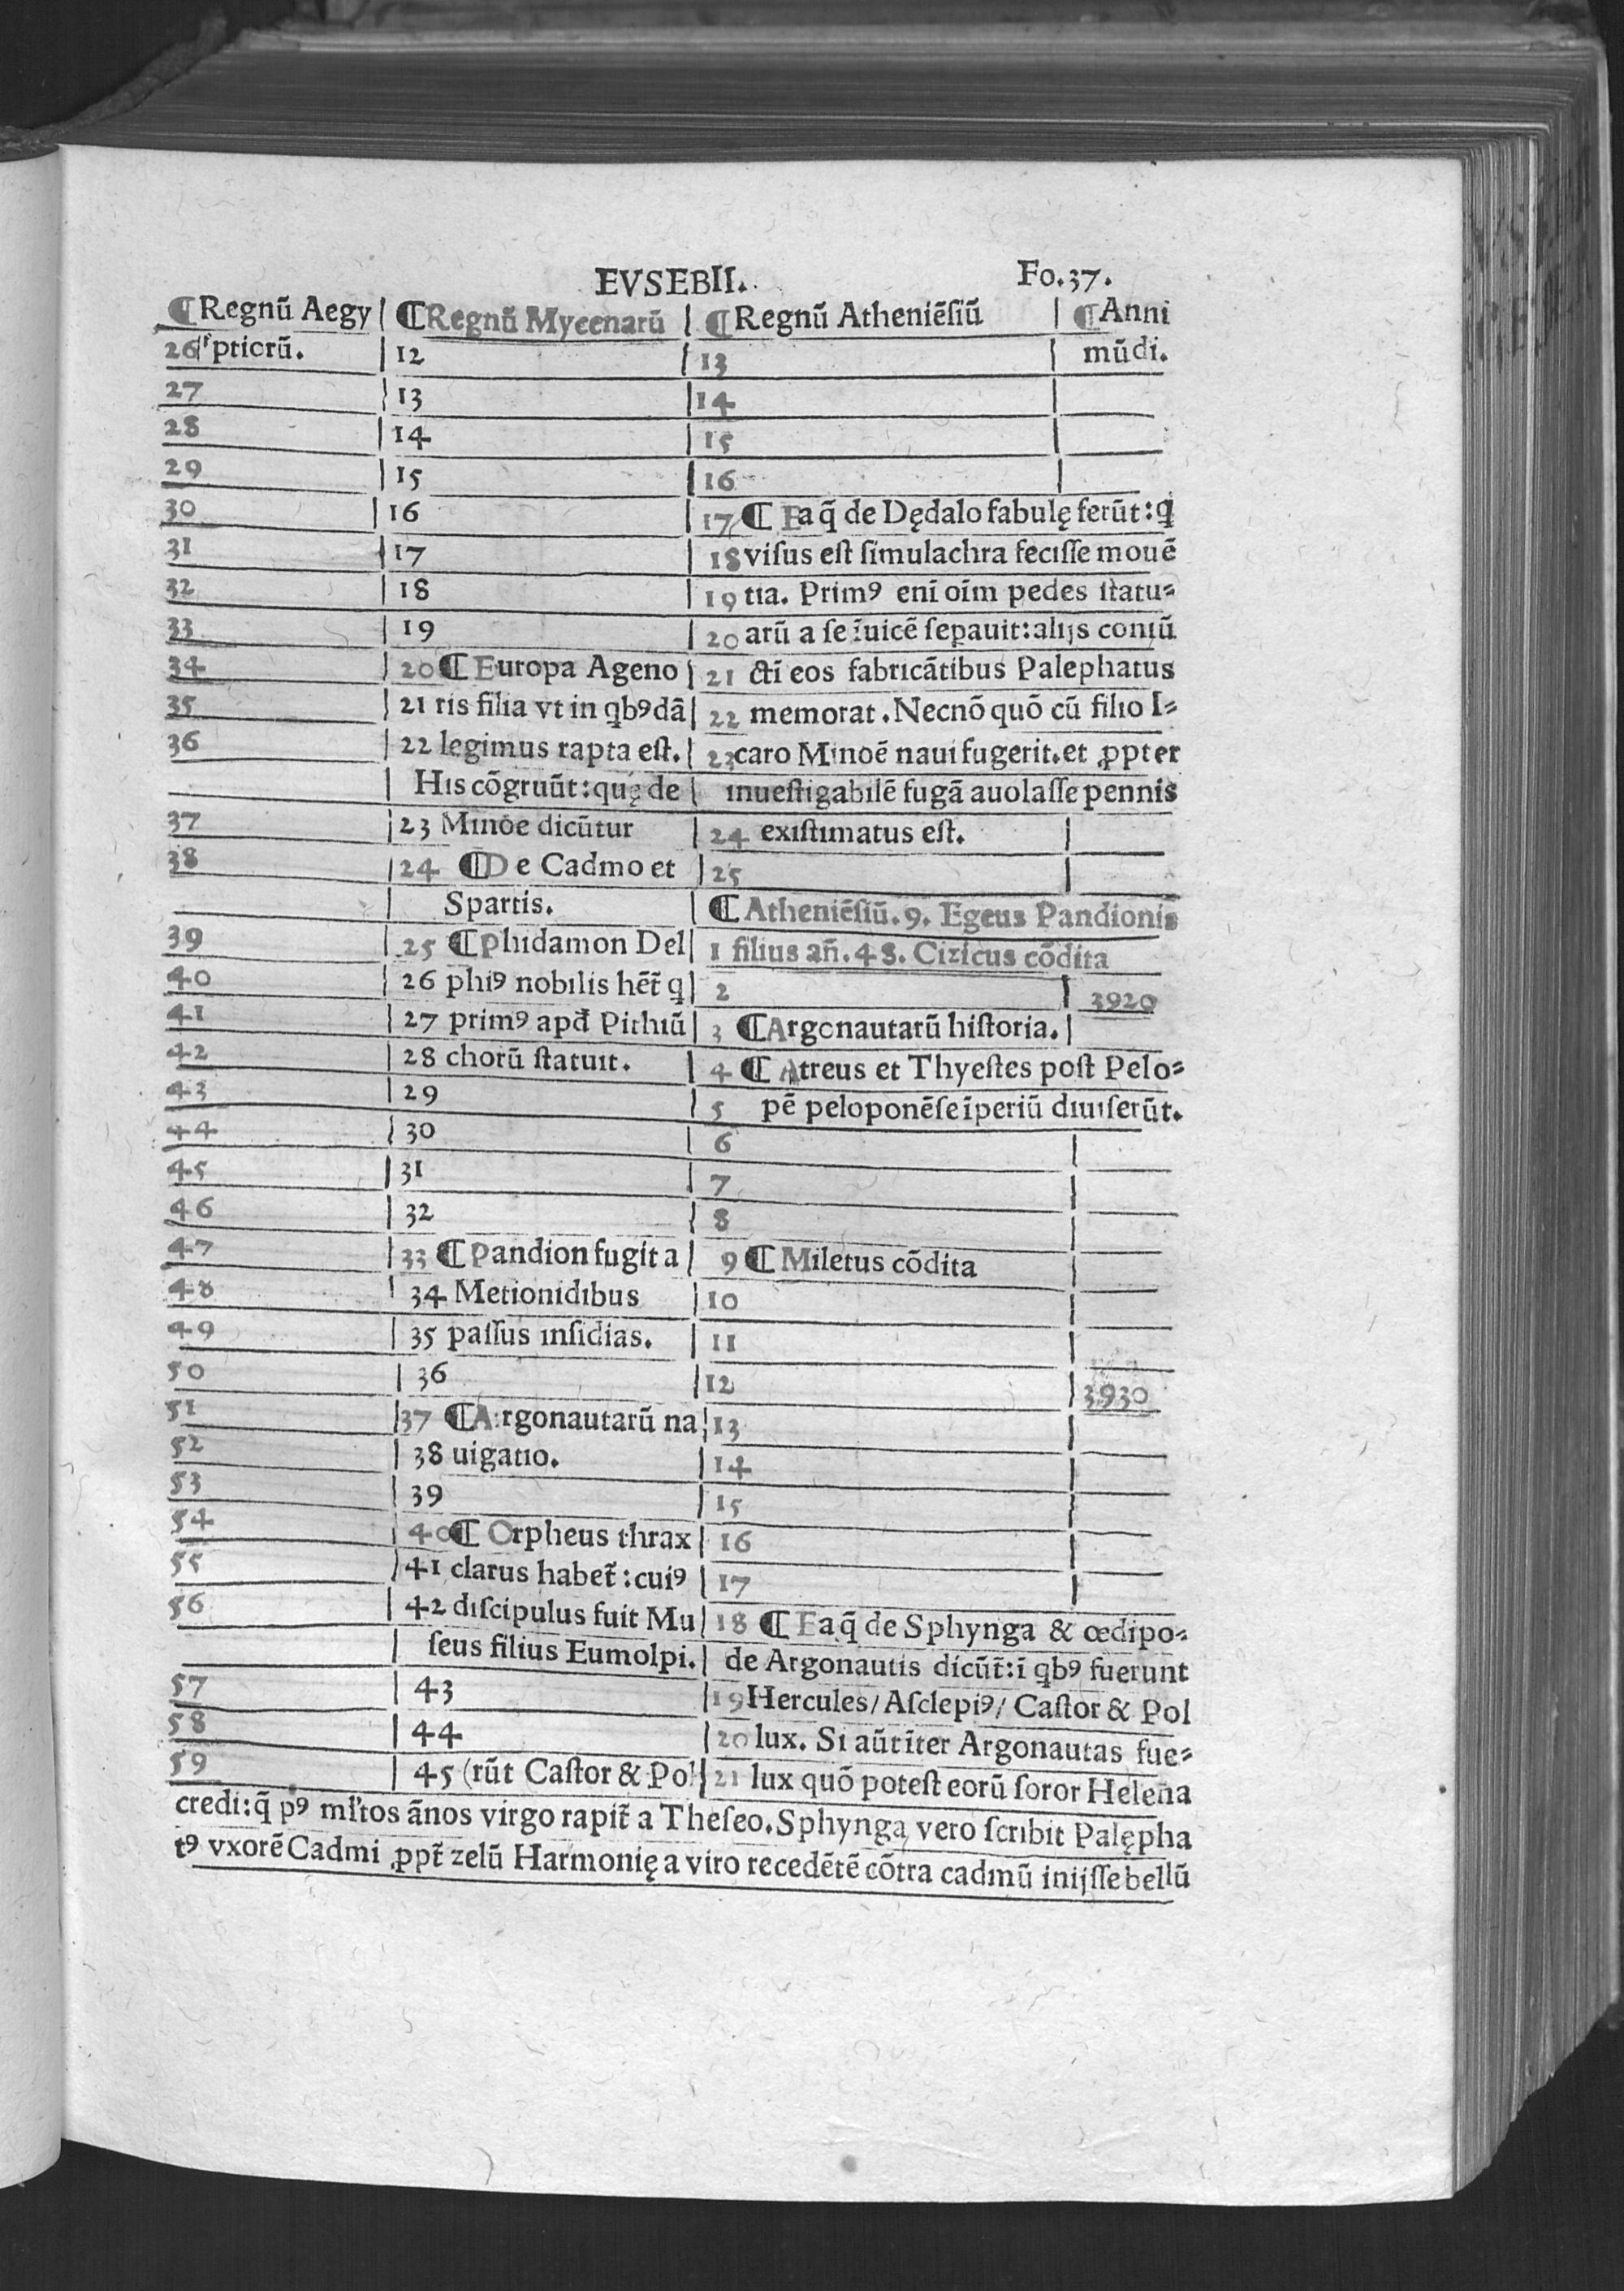 EVSEBII. Fo.37.
¶Regnū Aegy | ¶Regnū Mycenarū | ¶Regnū Atheniēſiū | ¶Anni
26 ptiorū. | 12 | 13 | mūdi.
27 | 13 | 14
28 | 14 | 15
29 | 15 | 16
30 | 16 | 17 ¶ Ea q̄ de Dędalo fabulę ferūt:q
31 | 17 | 18 viſus eſt ſimulachra feciſſe mouē
32 | 18 | 19 tia. Primꝰ enī oīm pedes ſtatu⸗
33 | 19 | 20 arū a ſe īuicē ſepauit:alijs coniū
34 | 20 ¶ Europa Ageno | 21 cti eos fabricātibus Palephatus
35 | 21 ris filia vt in qbꝰdā | 22 memorat. Necnō quō cū filio I⸗
36 | 22 legimus rapta eſt. | 23 caro Minoē naui fugerit. et ꝓpter
| His cōgruūt:quę de | inueſtigabilē fugā auolaſſe pennis
37 | 23 Minoe dicūtur | 24 exiſtimatus eſt.
38 | 24 ¶De Cadmo et | 25
| Spartis. | ¶Atheniēſiū. 9. Egeus Pandionis
39 | 25 ¶Phidamon Del | 1 filius añ. 48. Cizicus cōdita
40 | 26 phiꝰ nobilis het̄ q | 2 | 3920
41 | 27 primꝰ apđ Pithiū | 3 ¶Argonautarū hiſtoria.
42 | 28 chorū ſtatuit. | 4 ¶ Atreus et Thyeſtes poſt Pelo⸗
43 | 29 | 5 pē peloponēſe īperiū diuiſerūt.
44 | 30 | 6
45 | 31 | 7
46 | 32 | 8
47 | 33 ¶Pandion fugit a | 9 ¶ Miletus cōdita
48 | 34 Metionidibus | 10
49 | 35 paſſus inſidias. | 11
50 | 36 | 12 | 3930
51 | 37 ¶Argonautarū na | 13
52 | 38 uigatio. | 14
53 | 39 | 15
54 | 40 ¶ Orpheus thrax | 16
55 | 41 clarus habet̄:cuiꝰ | 17
56 | 42 diſcipulus fuit Mu | 18 ¶ Ea q̄ de Sphynga & œdipo⸗
| ſeus filius Eumolpi. | de Argonautis dicūt̄:ī qbꝰ fuerunt
57 | 43 | 19 Hercules/ Aſclepiꝰ/ Caſtor & Pol
58 | 44 | 20 lux. Si aūt īter Argonautas fue⸗
59 | 45 (rūt Caſtor & Pol | 21 lux quō poteſt eorū ſoror Helena
credi:q̄ pꝰ ml'tos ānos virgo rapit̄ a Theſeo. Sphynga vero ſcribit Palępha
tꝰ vxorē Cadmi ꝓpt̄ zelū Harmonię a viro recedētē cōtra cadmū inijſſe bellū